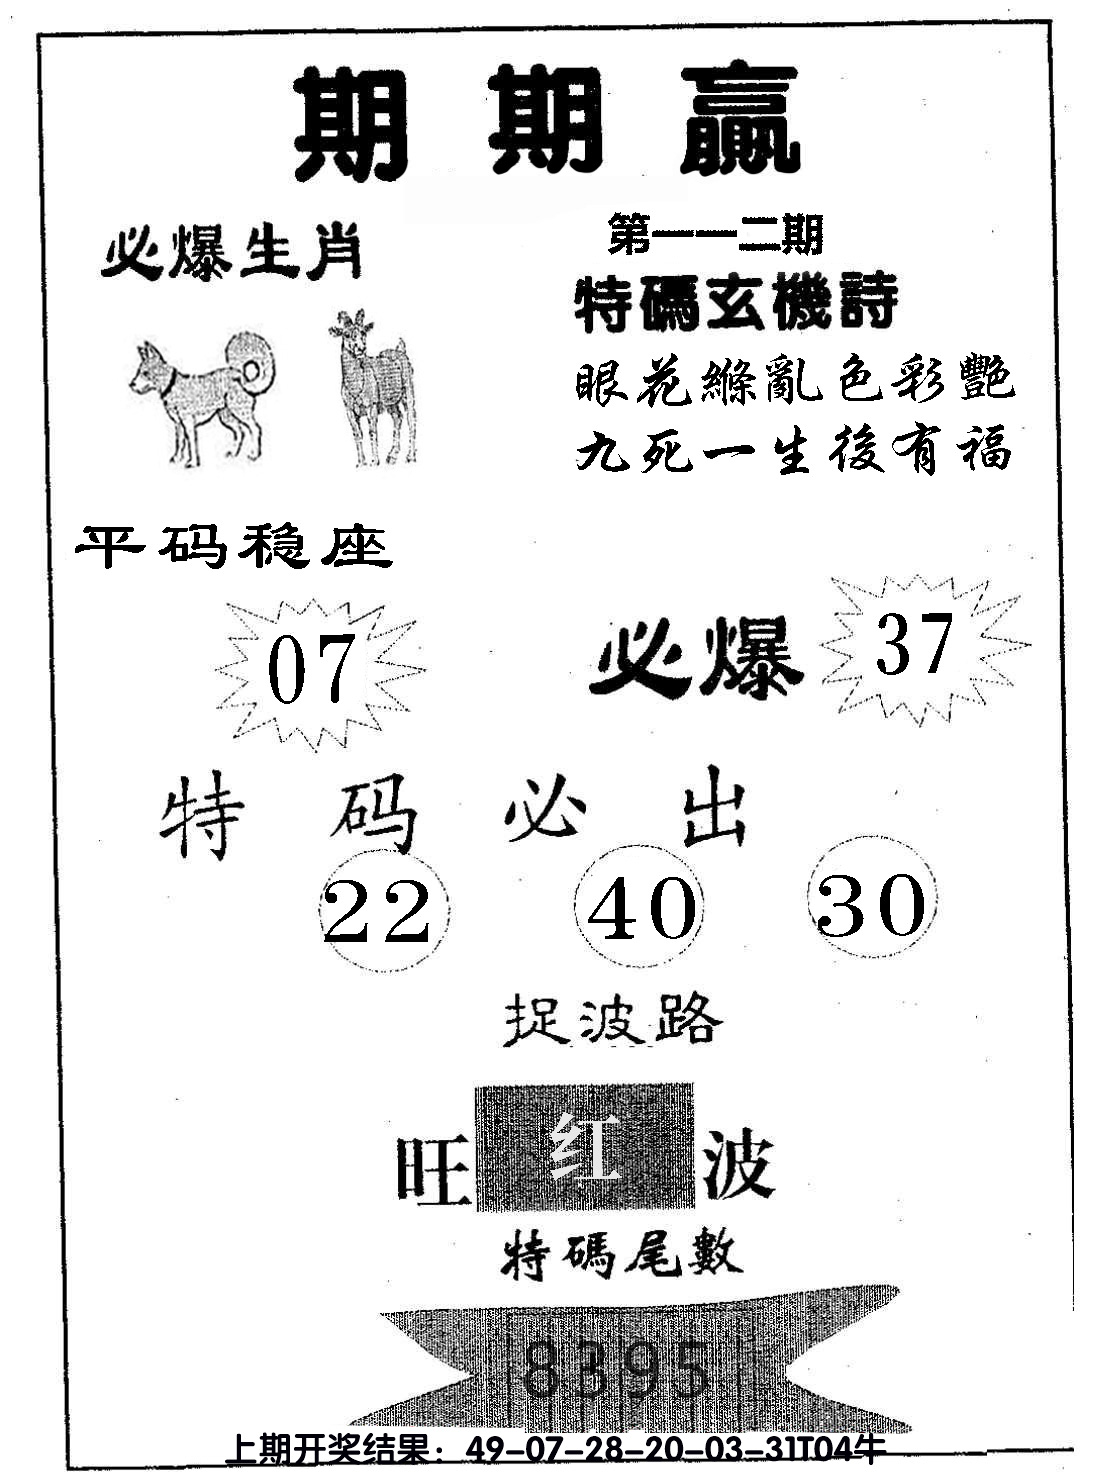 期期赢
必爆生肖
第一一二期
特碼玄機詩
眼花繚亂色彩艷
九死一生後有福
平码稳座
07
必爆 37
特码必出
22 40 30
捉波路
旺 红 波
特碼尾數
8395
上期开奖结果：49-07-28-20-03-31T04牛